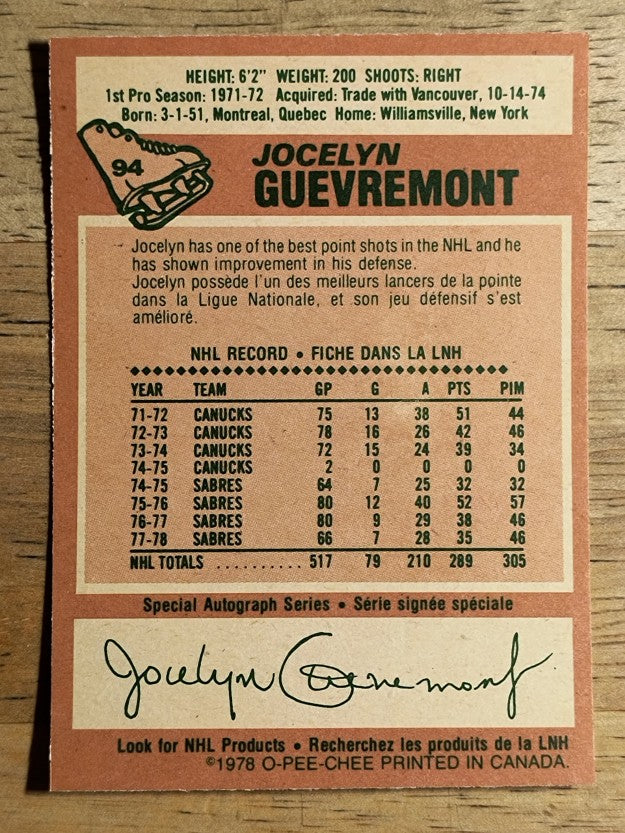 HEIGHT: 6'2" WEIGHT: 200 SHOOTS: RIGHT
1st Pro Season: 1971-72 Acquired: Trade with Vancouver, 10-14-74
Born: 3-1-51, Montreal, Quebec Home: Williamsville, New York
94
JOCELYN
GUEVREMONT
Jocelyn has one of the best point shots in the NHL and he
has shown improvement in his defense.
Jocelyn possède l'un des meilleurs lancers de la pointe
dans la Ligue Nationale, et son jeu défensif s'est
amélioré.
NHL RECORD • FICHE DANS LA LNH
YEAR TEAM GP G A PTS PIM
71-72 CANUCKS 75 13 38 51 44
72-73 CANUCKS 78 16 26 42 46
73-74 CANUCKS 72 15 24 39 34
74-75 CANUCKS 2 0 0 0 0
74-75 SABRES 64 7 25 32 32
75-76 SABRES 80 12 40 52 57
76-77 SABRES 80 9 29 38 46
77-78 SABRES 66 7 28 35 46
NHL TOTALS .......... 517 79 210 289 305
Special Autograph Series • Série signée spéciale
Jocelyn Guevremont
Look for NHL Products • Recherchez les produits de la LNH
©1978 O-PEE-CHEE PRINTED IN CANADA.